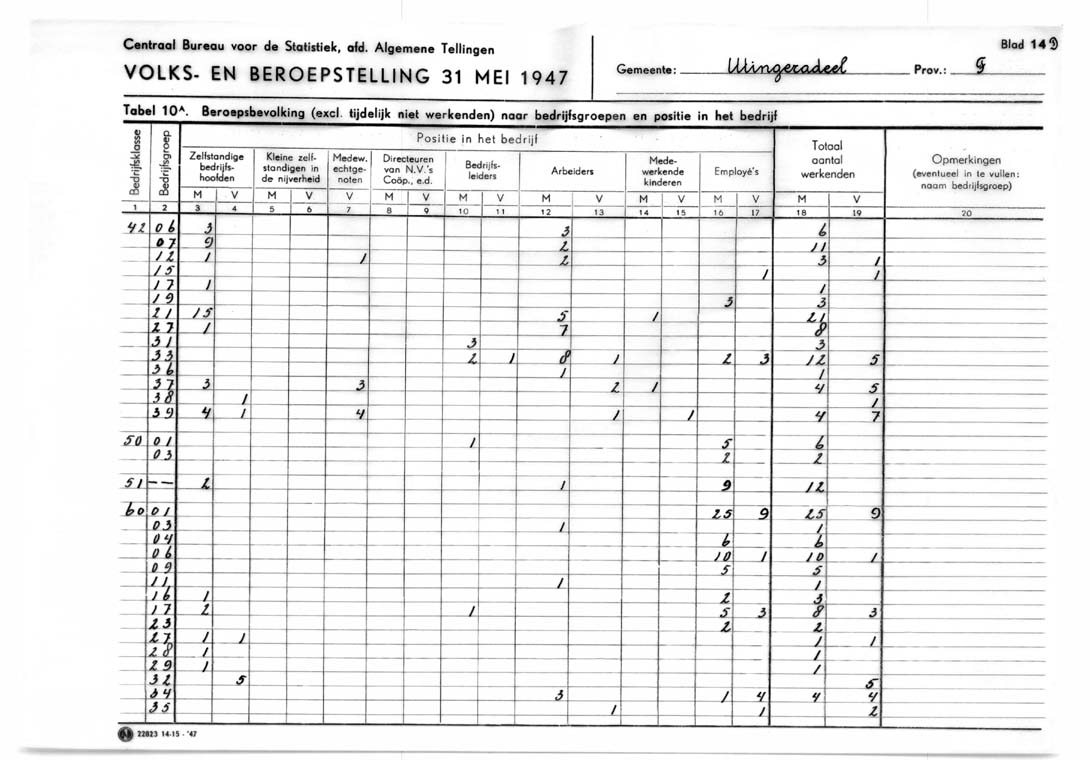 Centraal Bureau voor de Statistiek, afd. Algemene Tellingen
VOLKS- EN BEROEPSTELLING 31 MEI 1947
Gemeente: Utingeradeel Prov.: F
Blad 14 D
Tabel 10A. Beroepsbevolking (excl. tijdelijk niet werkenden) naar bedrijfsgroepen en positie in het bedrijf
Bedrijfsklasse
Bedrijfsgroep
Positie in het bedrijf
Zelfstandige bedrijfs-hoofden
Kleine zelf-standigen in de nijverheid
Medew. echtge-noten
Directeuren van N.V.'s Coöp., e.d.
Bedrijfs-leiders
Arbeiders
Mede-werkende kinderen
Employé's
Totaal aantal werkenden
Opmerkingen (eventueel in te vullen: naam bedrijfsgroep)
M V M V V M V M V M V M V M V M V
1 2 3 4 5 6 7 8 9 10 11 12 13 14 15 16 17 18 19 20
42 06 3 3 6
07 9 2 11
12 1 1 2 3 1
15 1 1
17 1 1
19 3 3
21 15 5 1 21
27 1 7 8
31 3 3
33 2 1 8 1 2 3 12 5
36 1 1
37 3 3 2 1 4 5
38 1 1
39 4 1 4 1 1 4 7
50 01 1 5 6
03 2 2
51 -- 2 1 9 12
60 01 25 9 25 9
03 1 1
04 6 6
06 10 1 10 1
09 5 5
11 1 1
16 1 2 3
17 2 1 5 3 8 3
23 2 2
27 1 1 1 1
28 1 1
29 1 1
32 5 5
34 3 1 4 4 4
35 1 1 2
22823 14-15 - '47